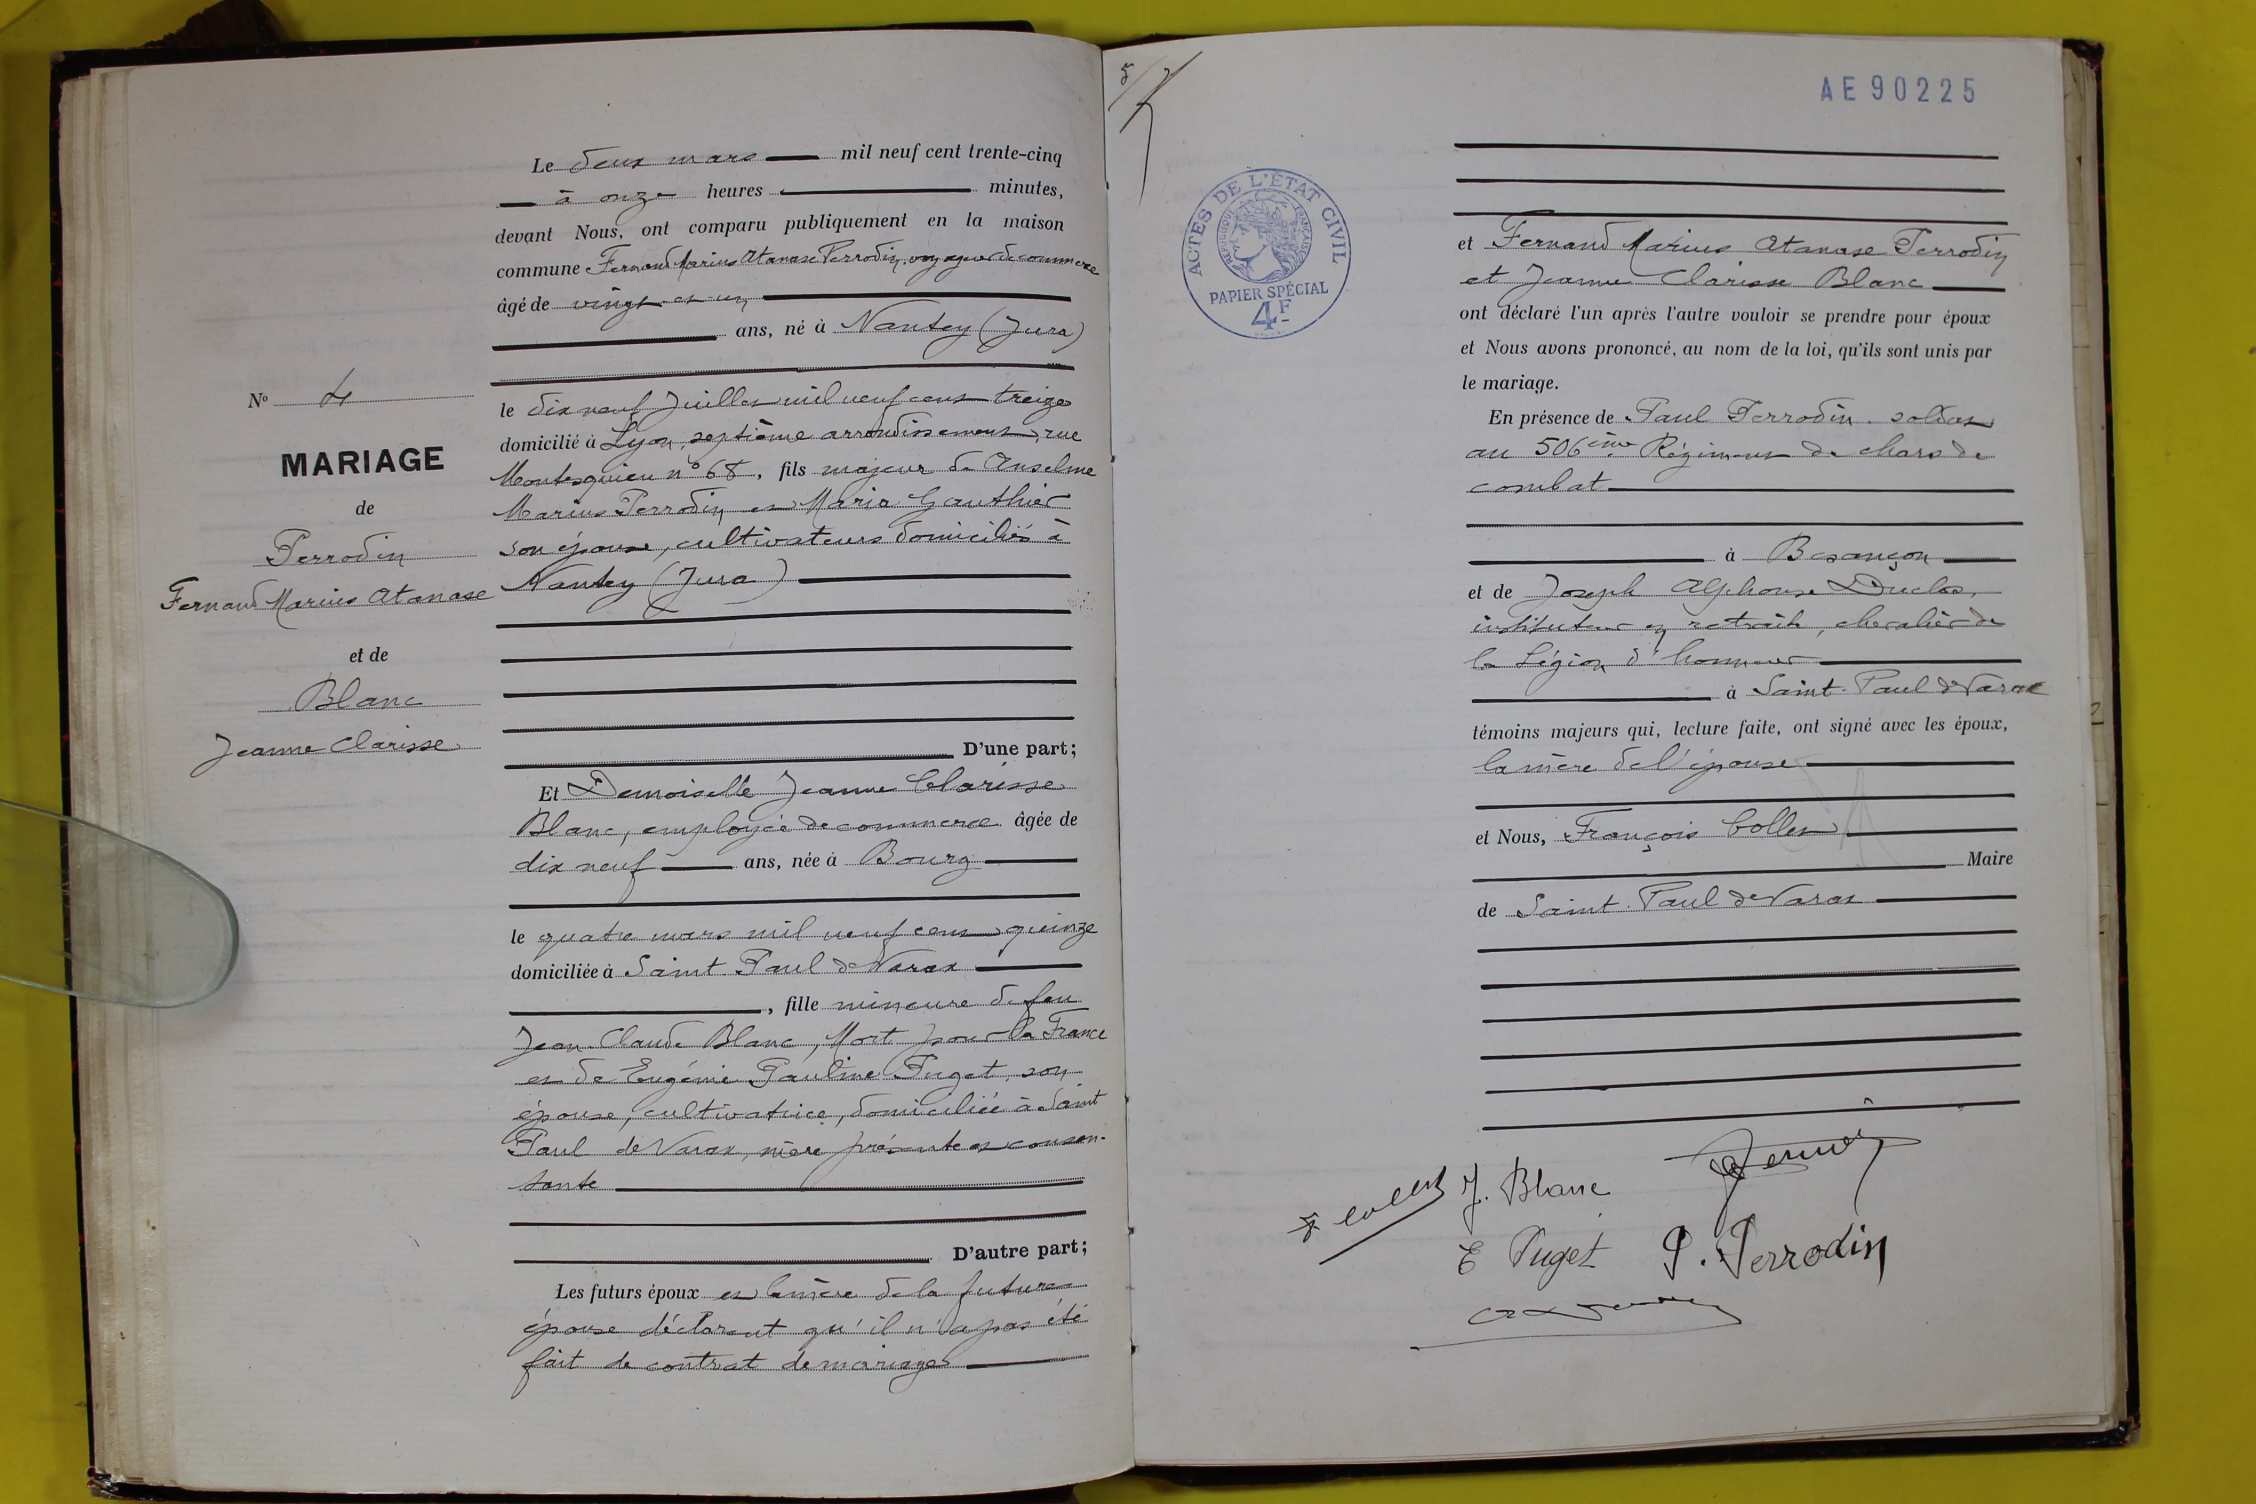 Le deux mars mil neuf cent trente-cinq
à onze heures minutes,
devant Nous, ont comparu publiquement en la maison
commune Fernand Marius Atanase Perrodin, voyageur de commerce
âgé de vingt et un
ans, né à Nantey (Jura)
le dix neuf Juillet mil neuf cent treize
domicilié à Lyon, septième arrondissement, rue
Montesquieu n° 68, fils majeur de Anselme
Marius Perrodin et Maria Gauthier
son épouse, cultivateurs domiciliés à
Nantey (Jura)
D'une part;
Et Demoiselle Jeanne Clarisse
Blanc, employée de commerce âgée de
dix neuf ans, née à Bourg
le quatre mars mil neuf cent quinze
domiciliée à Saint Paul de Varax
, fille mineure de feu
Jean Claude Blanc, Mort pour la France
et de Eugénie Pauline Puget, son
épouse, cultivatrice, domiciliée à Saint
Paul de Varax, mère présente et consen-
tante
D'autre part;
Les futurs époux et la mère de la future
épouse déclarent qu'il n'a pas été
fait de contrat de mariage
N° 4
MARIAGE
de
Perrodin
Fernand Marius Atanase
et de
Blanc
Jeanne Clarisse
5
AE 90225
ACTES DE L'ÉTAT CIVIL
RÉPUBLIQUE FRANÇAISE
PAPIER SPÉCIAL
4F
et Fernand Marius Atanase Perrodin
et Jeanne Clarisse Blanc
ont déclaré l'un après l'autre vouloir se prendre pour époux
et Nous avons prononcé, au nom de la loi, qu'ils sont unis par
le mariage.
En présence de Paul Perrodin soldat
au 506ème Régiment de chars de
combat
à Besançon
et de Joseph Alphonse Duclos,
instituteur en retraite, chevalier de
la Légion d'honneur
à Saint Paul de Varax
témoins majeurs qui, lecture faite, ont signé avec les époux,
la mère de l'épouse
et Nous, François Collet
Maire
de Saint Paul de Varax
J. Blanc
E Puget P. Perrodin